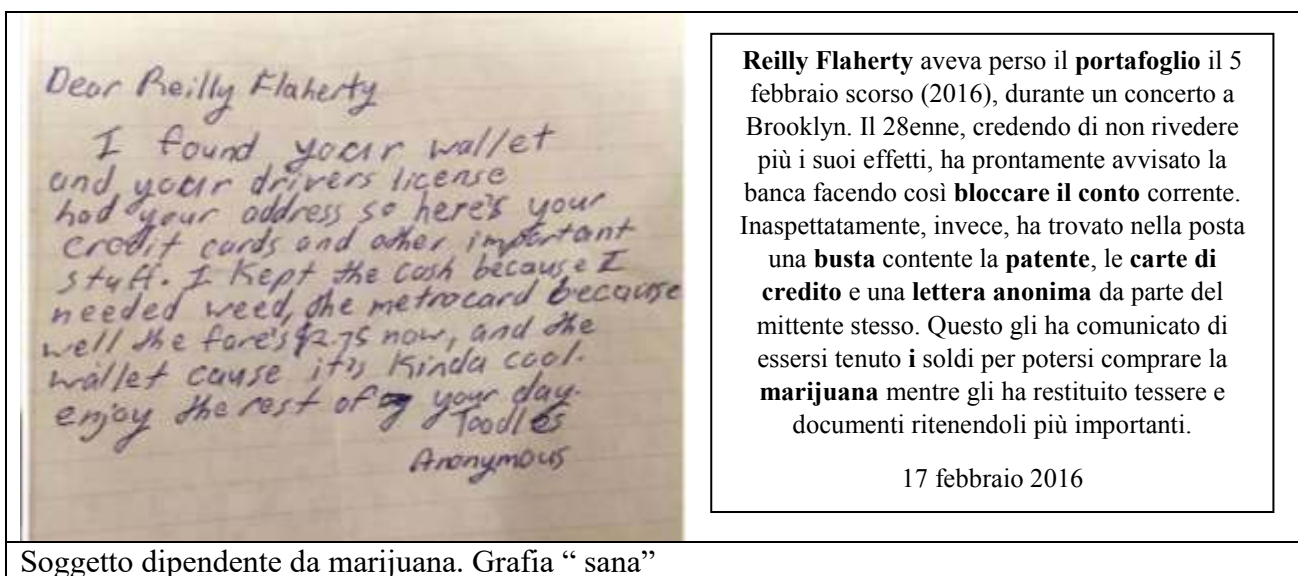 Dear Reilly Flaherty
I found your wallet
and your drivers license
had your address so here's your
credit cards and other important
stuff. I Kept the cash because I
needed weed, the metrocard because
well the fare's $2.75 now, and the
wallet cause it's Kinda cool.
enjoy the rest of your day.
Toodles
Anonymous
Reilly Flaherty aveva perso il portafoglio il 5
febbraio scorso (2016), durante un concerto a
Brooklyn. Il 28enne, credendo di non rivedere
più i suoi effetti, ha prontamente avvisato la
banca facendo così bloccare il conto corrente.
Inaspettatamente, invece, ha trovato nella posta
una busta contente la patente, le carte di
credito e una lettera anonima da parte del
mittente stesso. Questo gli ha comunicato di
essersi tenuto i soldi per potersi comprare la
marijuana mentre gli ha restituito tessere e
documenti ritenendoli più importanti.
17 febbraio 2016
Soggetto dipendente da marijuana. Grafia “ sana”